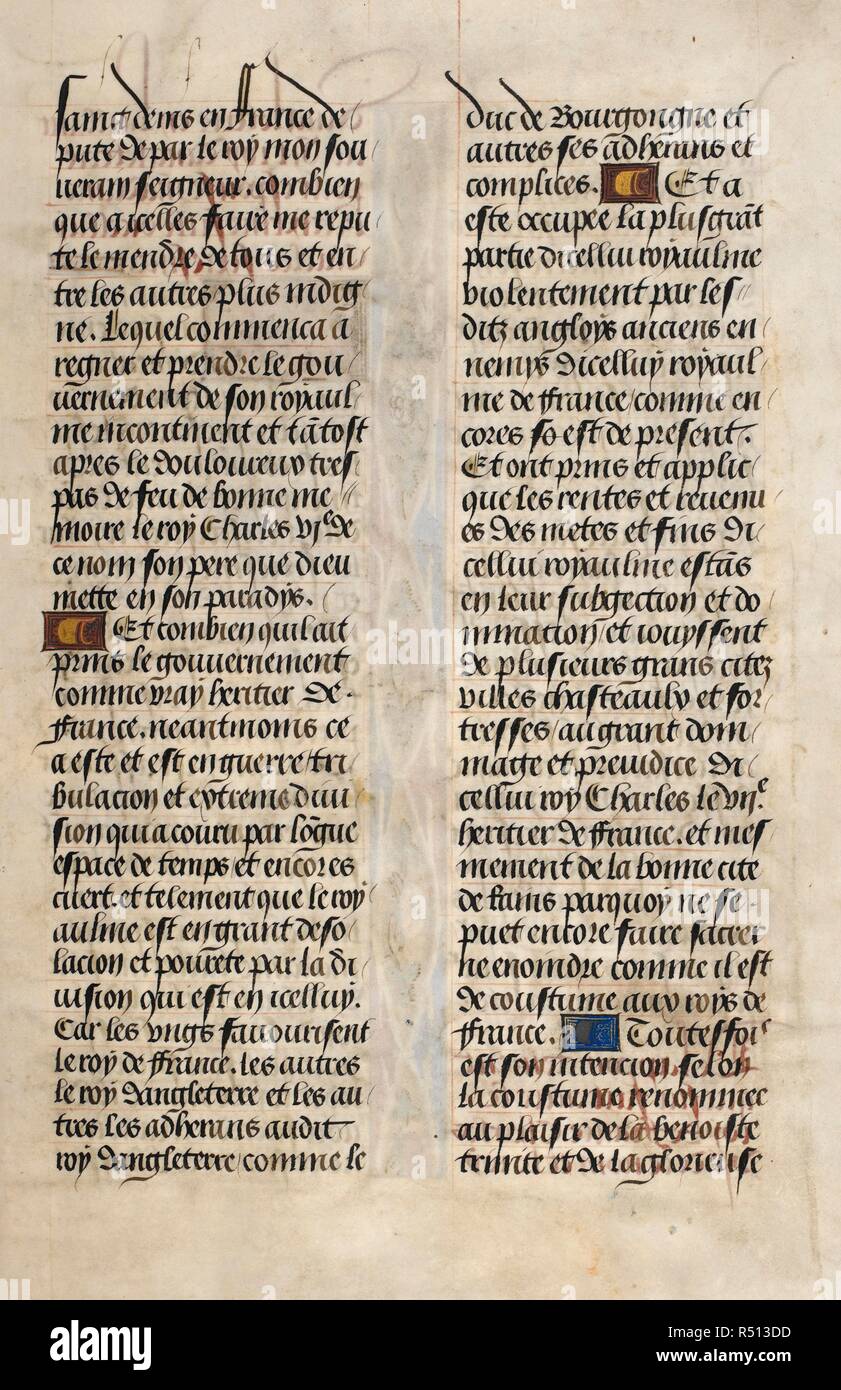 sainct denis en france de
pute de par le roy mon sou
uerain seigneur. combien
que a icelles faire me repu
te le mendre de tous et en
tre les autres plus indig
ne. Lequel commenca a
regner et prendre le gou
uernement de son royaul
me incontinent et tātost
apres le douloureux tres
pas de feu de bonne me
moire le roy Charles vjᵉ de
ce nom son pere que dieu
mette en son paradys.
Et combien quil ait
prins le gouuernement
comme vray heritier de
france. neantmoins ce
a este et est en guerre tri
bulacion et extreme diui
sion qui a couru par lōgue
espace de temps et encores
cuert. et telement que le roy
aulme est en grant deso
lacion et pourete par la di
uision qui est en icelluy.
Car les vngs fauourisent
le roy de france. les autres
le roy dangleterre et les au
tres les adherans audit
roy dangleterre comme le
duc de Bourgongne et
autres ses adherans et
complices. Et a
este occupee la plus grāt
partie dicellui royaulme
violentement par les
ditz angloys anciens en
nemys dicelluy royaul
me de france comme en
cores so est de present.
Et ont prins et applic
que les rentes et reuenu
es des metes et fins di
cellui royaulme estās
en leur subgection et do
minacion et iouyssent
de plusieurs grans citez
villes chasteaulx et for
tresses au grant dom
mage et preiudice di
cellui roy Charles le vijᵉ.
heritier de france. et mes
mement de la bonne cite
de parquoy ne se
puet encore faire sacrer
ne enoindre comme il est
de coustume aux roys de
france. Toutesfois
est son intencion selon
la coustume renommee
au plaisir de la benoiste
trinite et de la glorieuse
alamy
Image ID: R513DD
www.alamy.com